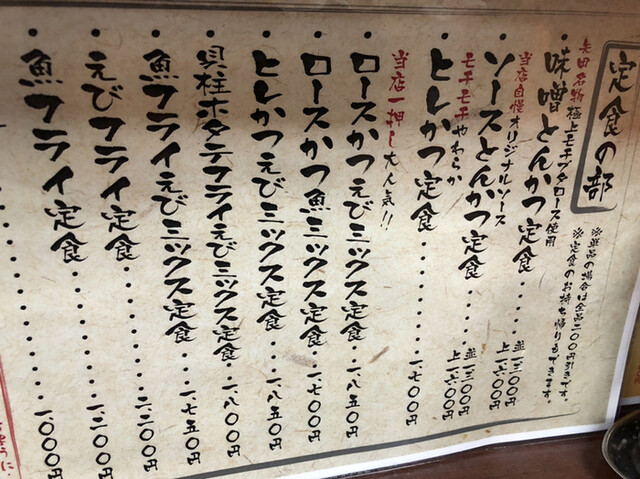 定食の部
※単品の場合は全品二〇〇円引きです。
※定食のお持ち帰りもできます。
名物極上モチブタロース使用
・味噌とんかつ定食‥‥ 並一、三〇〇円 上一、六〇〇円
当店自慢オリジナルソース
・ソースとんかつ定食‥‥ 並一、三〇〇円 上一、六〇〇円
モチモチやわらか
・とんかつ定食‥‥‥‥ 一、七〇〇円
当店一押し大人気!!
・ロースかつえびミックス定食‥‥ 一、八五〇円
・ロースかつ魚ミックス定食‥‥ 一、七〇〇円
・ヒレかつえびミックス定食‥‥ 一、八五〇円
・貝柱ホタテフライえびミックス定食‥ 一、八〇〇円
・魚フライえびミックス定食‥‥ 一、七五〇円
・えびフライ定食‥‥‥‥
・魚フライ定食‥‥‥‥ 一、〇〇〇円